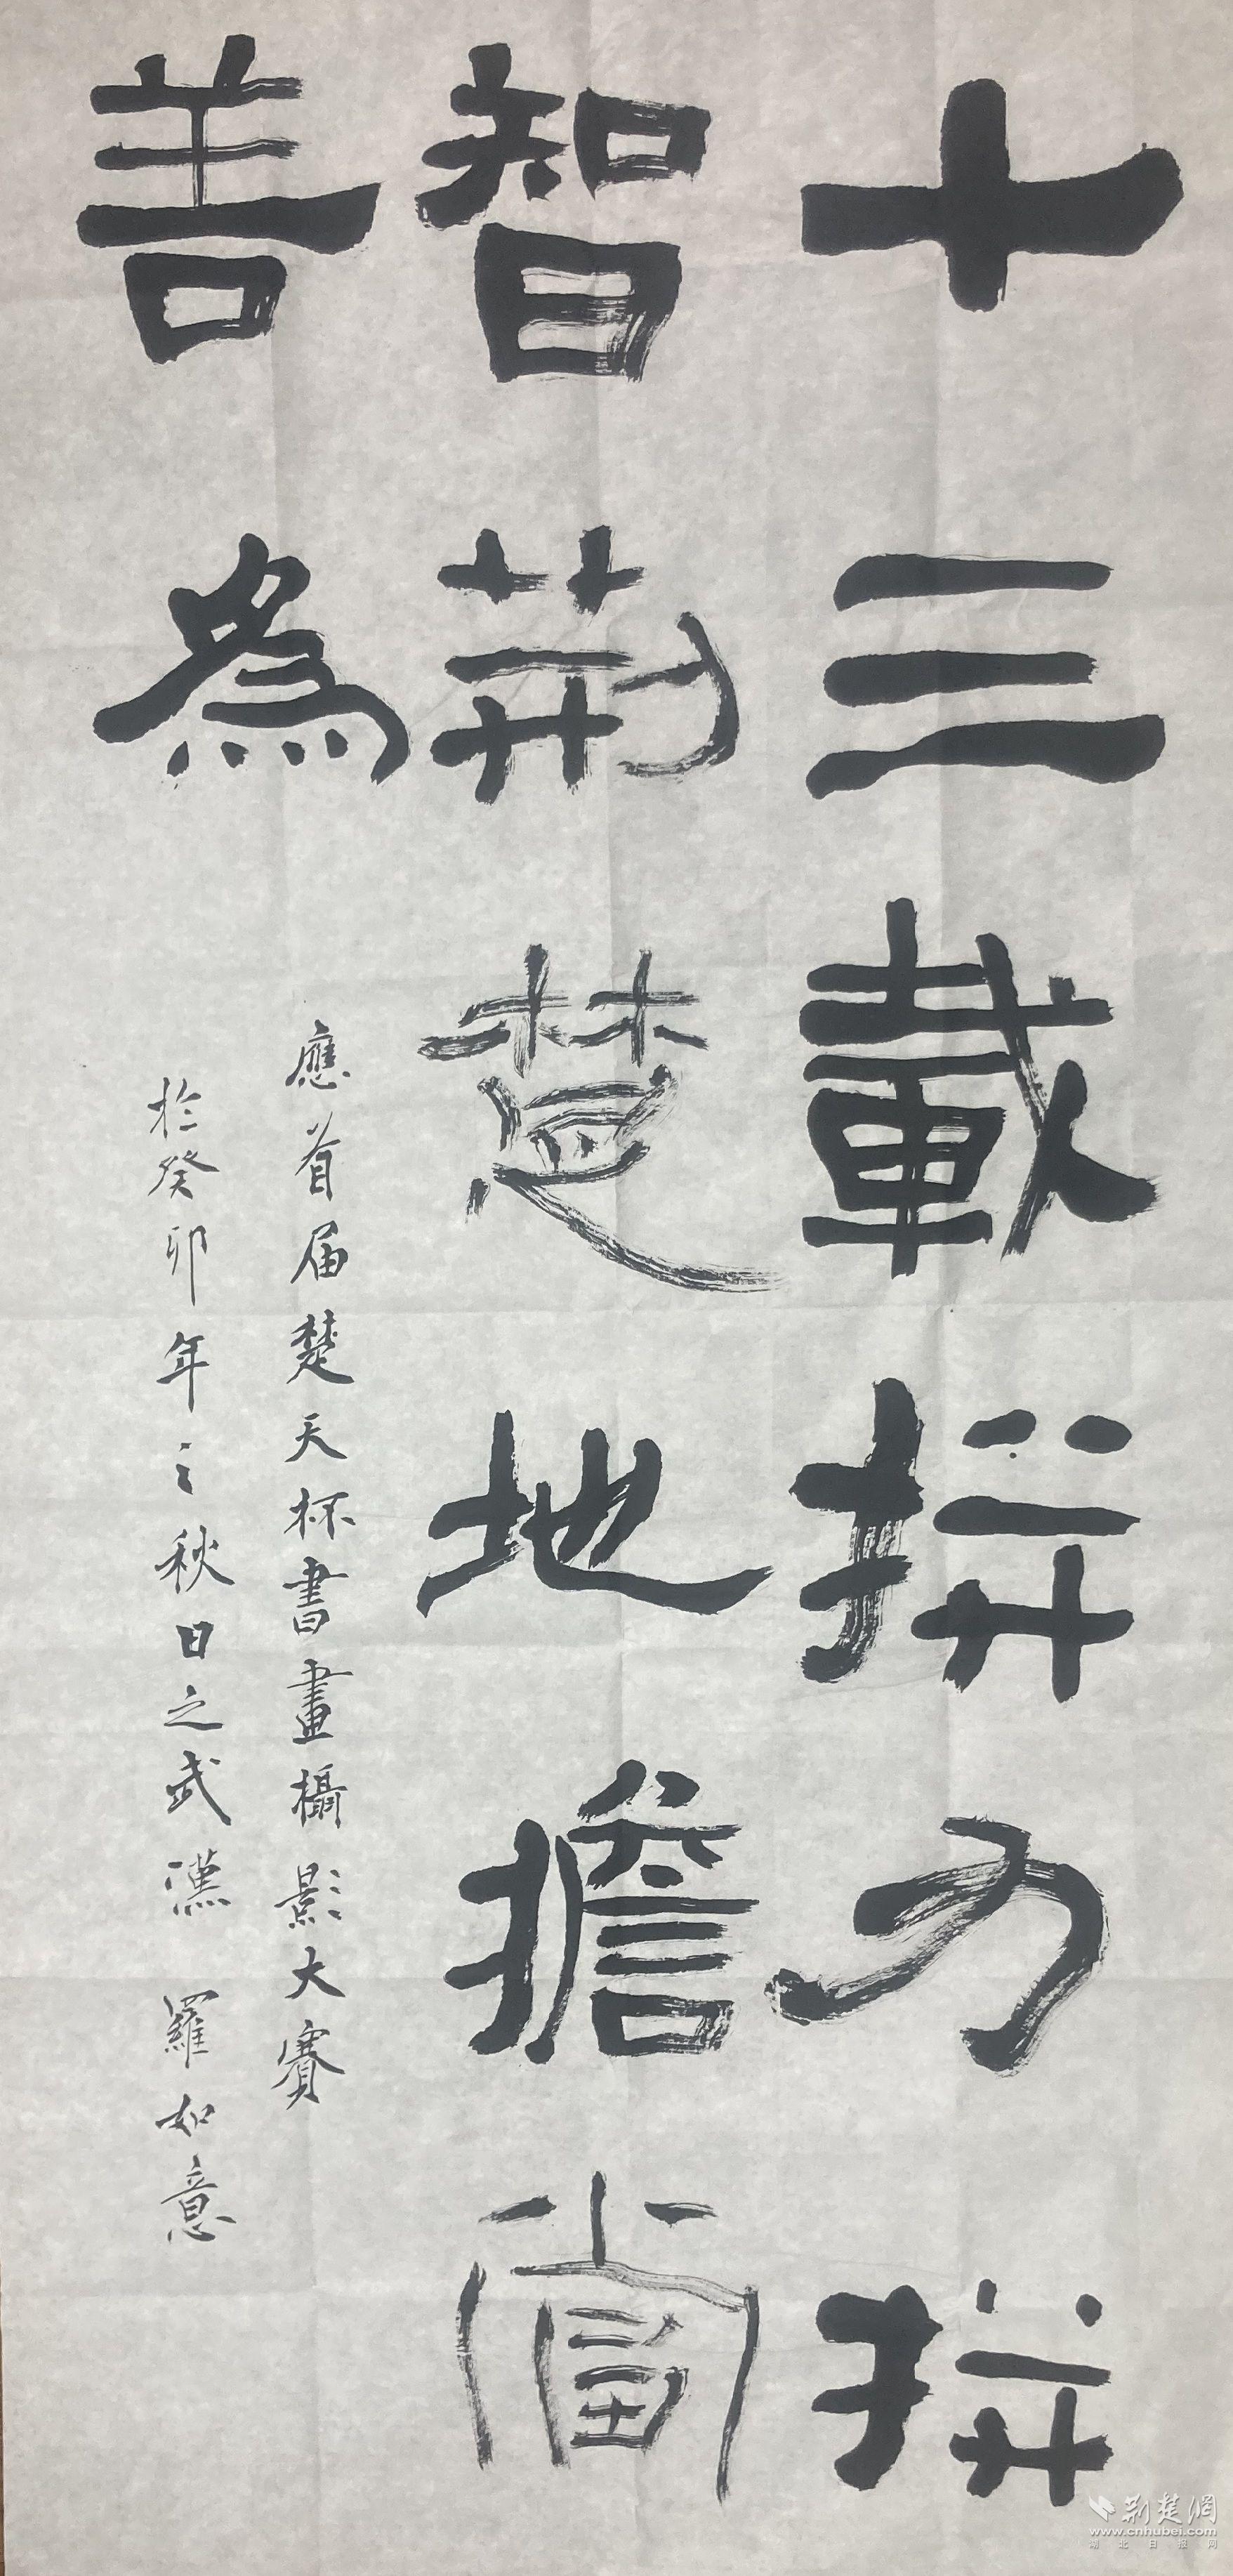 十三載拚力拚
智荊楚地擔當
善為
應首届楚天杯書畫攝影大賽
於癸卯年之秋日之武漢 羅如意
荆楚網
www.cnhubei.com
湖北日报网